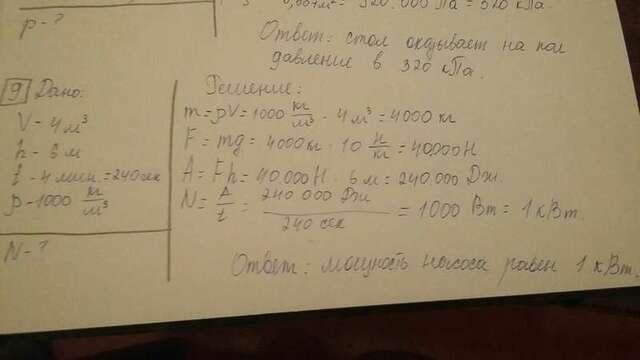 p-?
0,001м² = 320.000 Па = 320 кПа.
Ответ: стол оказывает на пол
давление в 320 кПа.
9 Дано:
V - 4 м³
h - 6 м
t - 4 мин. = 240 сек
ρ - 1000 кг/м³
N - ?
Решение:
m = ρV = 1000 кг/м³ · 4 м³ = 4000 кг
F = mg = 4000 кг · 10 Н/кг = 40000 Н
A = Fh = 40.000 Н · 6 м = 240.000 Дж.
N = A/t = 240 000 Дж / 240 сек = 1000 Вт = 1 кВт.
Ответ: мощность насоса равен 1 кВт.